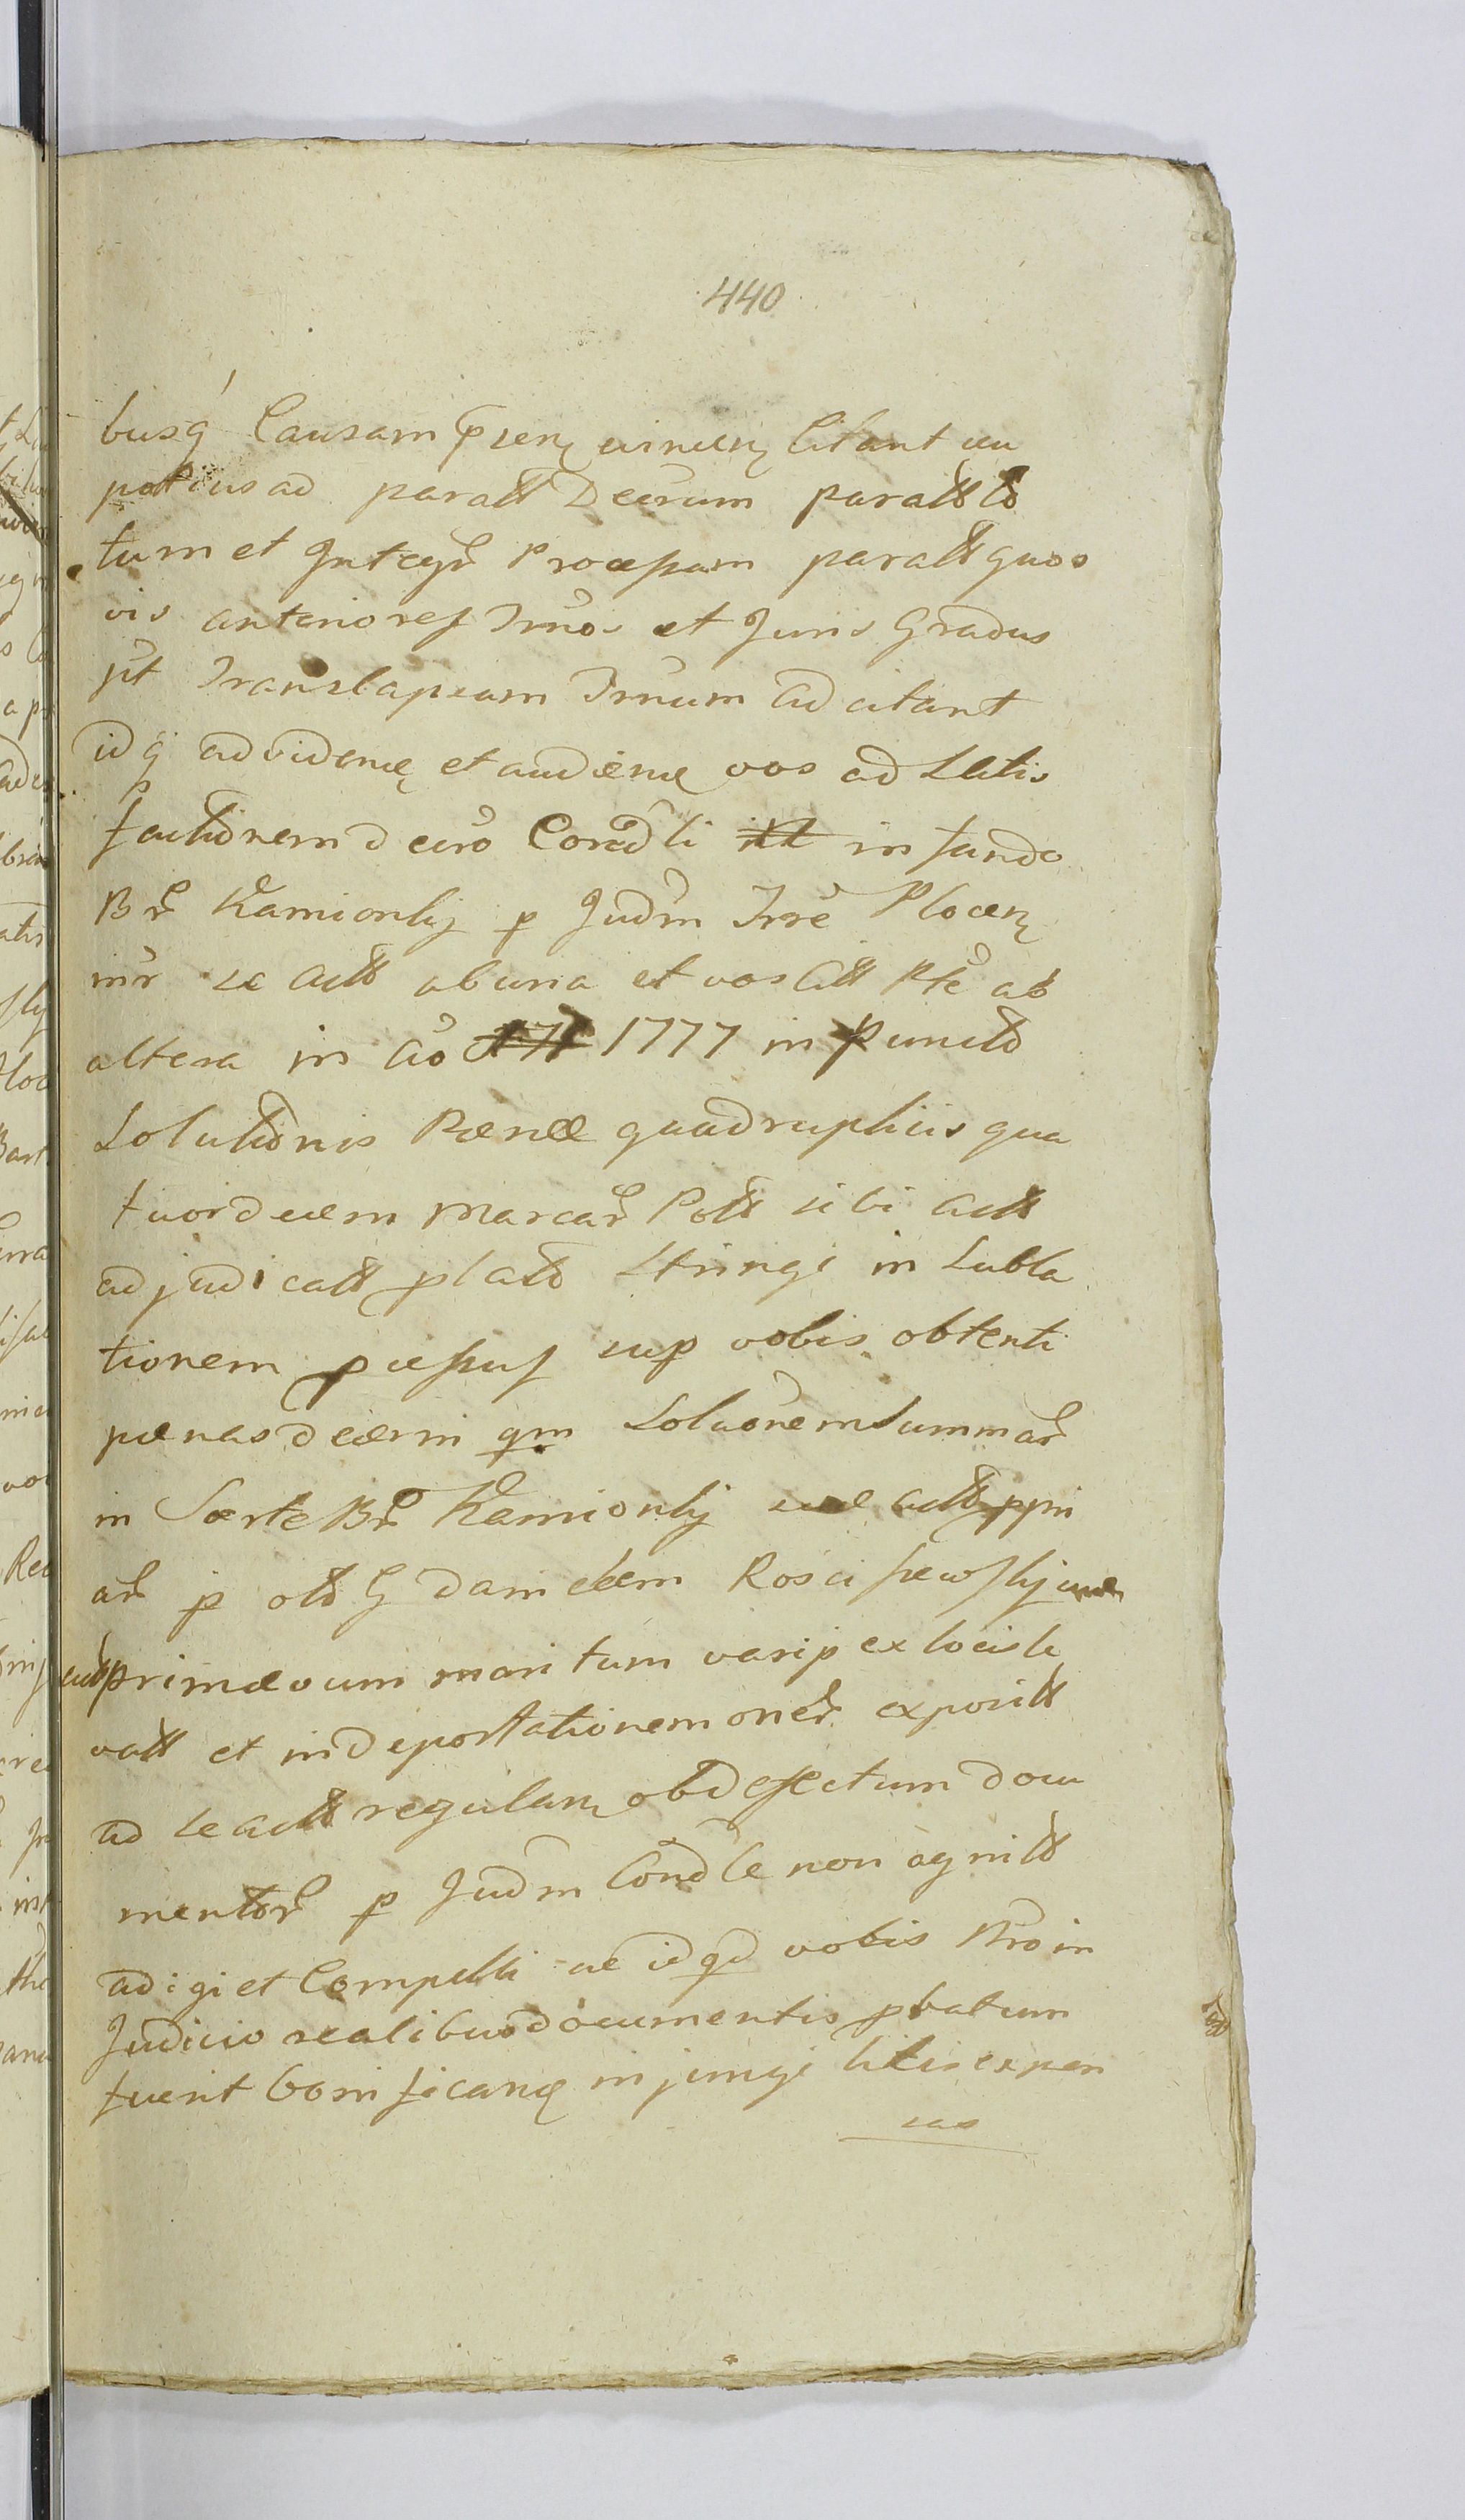 440
busq Causam pren evincen Citant ceu
potius ad paratt Decrum paratt to
tum et Integr Processum paratt quos
vis anteriores Trnos et Juris Gradus
pt Translapsum Trnum adcitant
idq ad viden et audien vos ad Satis
factionem decro Condli in fundo
Br Kamionky p Judm Trre Plocen
inr se actt ab una et vos Citt Pte ab
altera in Ao 1777 in puncto
Solutionis Pænæ quadruplicis qua
tuordecem Marcar Poll sibi actt
adjudicatt plato Stringi in Subla
tionem pcessus sup vobis obtenti
pænas decerni qm Solvonem Summar
in Sorte Br Kamionky suæ actt ppri
ar p olb G Damclem Rosciszewsky
actt primævum maritum varijs ex locis le
vatt et in deportationem oner exposult
ad se actt regularn ob defectum docu
mentor p Judm Condle non agnitt
adigi et Compelli ac id qd vobis Pro in
Judicio realibus documentis pbatum
fuerit bonifican injungi litis expen
sas